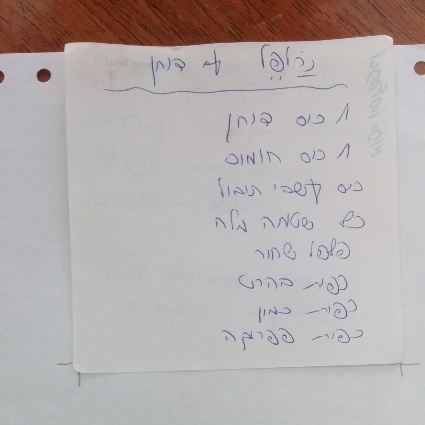 עם דוחן
1 כוס דוחן
1 כוס חומוס
כוס עשבי תיבול
כף שטוחה מלח
פלפל שחור
כפית בהרט
כפית כמון
כפית פפריקה